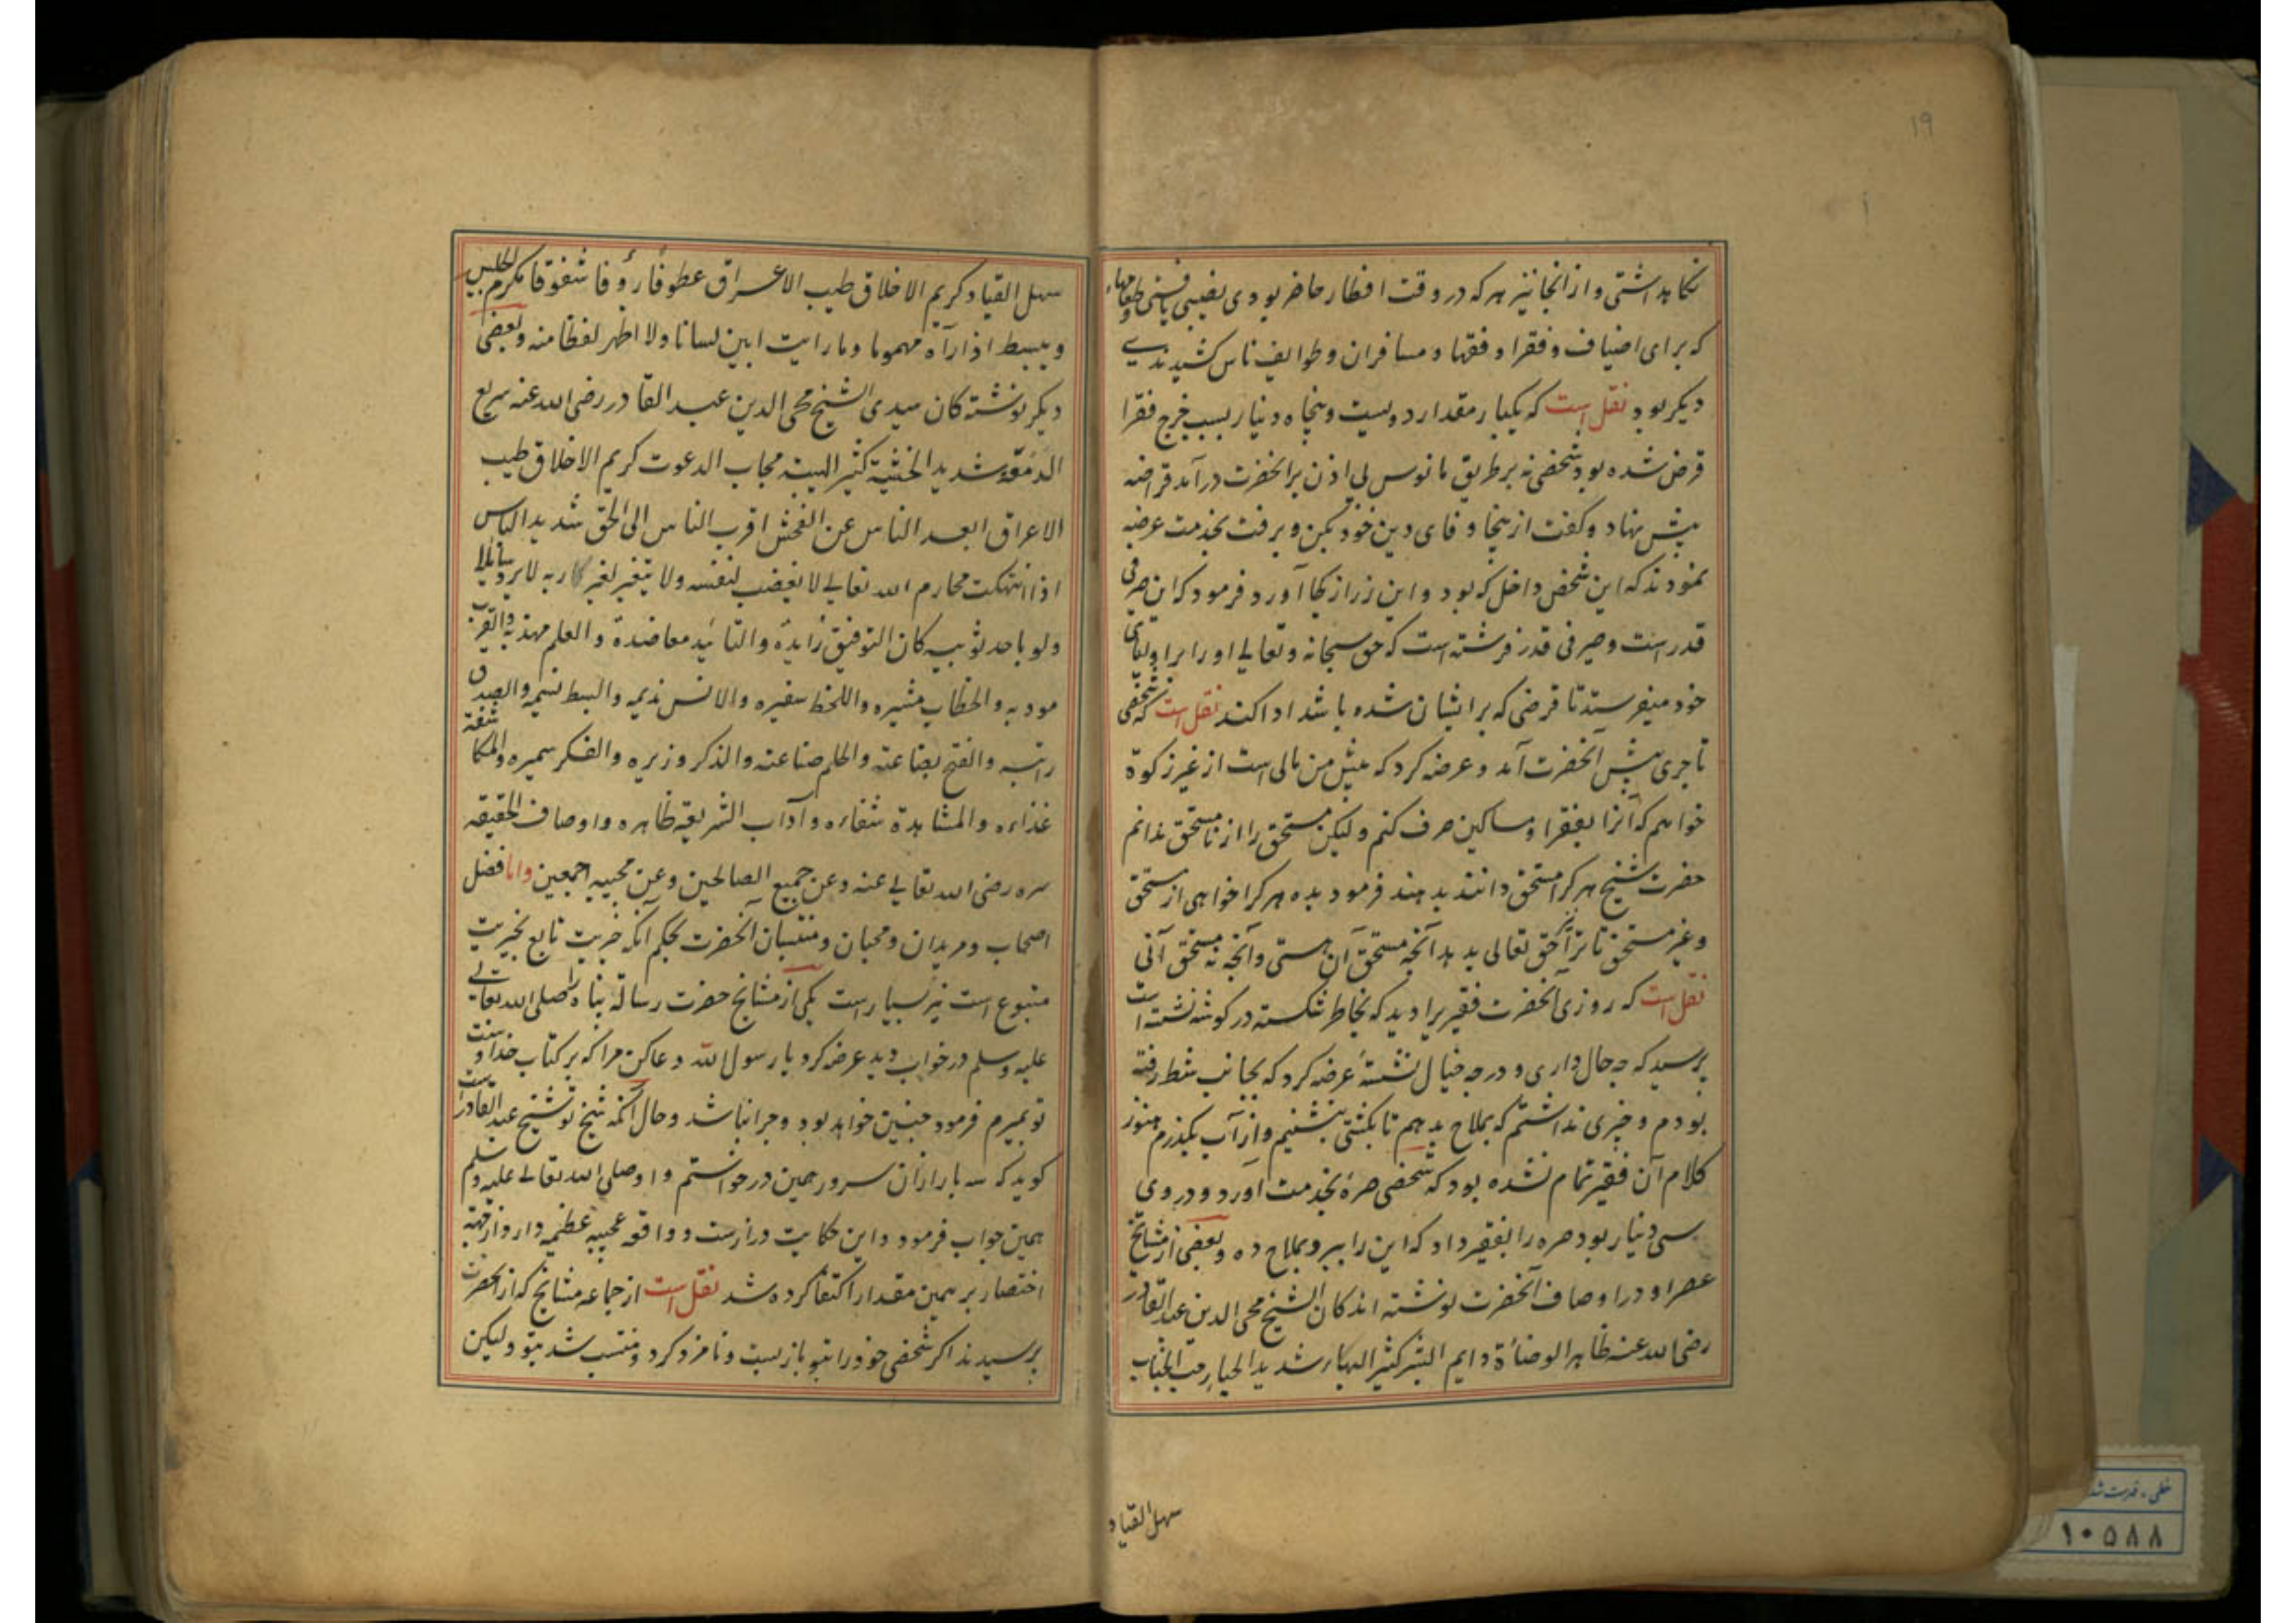 ۱۹
نگاه داشتی و از آنجا نیز هر که در وقت افطار حاضر بودی نصیبی یافتی و طعامهاء
که برای اضیاف و فقرا و فقها و مسافران و طوایف ناس کشیدندی
دیگر بود نقل است که یکبار مقدار دویست و پنجاه دینار بسبب خرج فقرا
قرض شده بود شخصی نه بر طریق مانوس بی اذن بر آنحضرت درآمد قراضه
پیش نهاد و گفت از ینجا وفای دین خود بکن و برفت بخدمت عرضه
نمودند که این شخص داخل که بود و این زر از کجا آورد فرمود که این صرفی
قدر است و صیرفی قدر فرشته است که حق سبحانه و تعالی او را بر اولیای
خود میفرستد تا قرضی که بر ایشان شده باشد ادا کند نقل است که شخصی
تاجری پیش آنحضرت آمد و عرضه کرد که پیش من مالی است از غیر زکوة
خواهم که آنرا بفقرا و مساکین صرف کنم ولیکن مستحق را از نامستحق ندانم
حضرت شیخ هر کرا مستحق دانند بدهند فرمود بده هر کرا خواهی از مستحق
و غیر مستحق تا ترا حق تعالی بدهد آنچه مستحق آن هستی و آنچه نه مستحق آنی
نقل است که روزی آنحضرت فقیریرا دید که بخاطر شکسته در گوشه نشسته است
پرسید که چه حال داری و در چه خیال نشستهٔ عرضه کرد که بجانب شط رفته
بودم و چیزی نداشتم که بملاح بدهم تا بکشتی بنشینم و از آب بگذرم هنوز
کلام آن فقیر تمام نشده بود که شخصی صرهٔ بخدمت آورد و در وی
سی دینار بود صره را بفقیر داد که این را ببر و بملاح ده و بعضی از مشایخ
عصر او در اوصاف آنحضرت نوشته اند کان الشیخ محی الدین عبد القادر
رضی الله عنه ظاهر الوضاءة دایم البشر کثیر البهاء شدید الحیا رحب الجناب
سهل القیاد
سهل القیاد کریم الاخلاق طیب الاعراق عطوفا رؤفا شفوقا مکرم الجلیس
و یبسط اذا رآه مهموما و ما رایت ابین لسانا ولا اطهر لفظا منه و بعضی
دیگر نوشته کان سیدی الشیخ محی الدین عبد القادر رضی الله عنه سریع
الدمعة شدید الخشیة کثیر الهیبة مجاب الدعوت کریم الاخلاق طیب
الاعراق ابعد الناس عن الفحش اقرب الناس الی الحق شدید الباس
اذا انتهکت محارم الله تعالی لا یغضب لنفسه ولا یتغیر لغیر ربه لا یرد سائلا
ولو باحد ثوبیه کان التوفیق زایده والتائید معاضدة والعلم مهذبه والقرب
مودبه والخطاب مشیره واللحظ سفیره والانس ندیمه والبسط نسیمه والصدق
رایته والفتح بضاعته والحلم صناعته والذکر وزیره والفکر سمیره والمکاشفة
غذاءه والمشاهدة شفاءه و آداب الشریعة ظاهره و اوصاف الحقیقه
سره رضی الله تعالی عنه و عن جمیع الصالحین و عن محبیه اجمعین و اما فضل
اصحاب و مریدان و محبان و منتسبان آنحضرت بحکم آنکه خیریت تابع بخیریت
متبوع است نیز بسیار است یکی از مشایخ حضرت رسالة پناه را صلی الله تعالی
علیه و سلم در خواب دید عرضه کرد یا رسول الله دعا کن مرا که بر کتاب خدا و سنت
تو بمیرم فرمود چنین خواهد بود و چرا نباشد و حال آنکه شیخ تو شیخ عبد القادر است
گوید که سه بار از آن سرور همین درخواستم و او صلی الله تعالی علیه و سلم
همین جواب فرمود و این حکایت دراز است و واقعه عجیبه عظیمه دارد از جهة
اختصار بر همین مقدار اکتفا کرده شد نقل است از جماعه مشایخ که از آنحضرت
پرسیدند اگر شخصی خود را بتو باز بست و نامزد کرد و منتسب شد بتو ولیکن
خطی - فهرست شده
۱۰۵۸۸